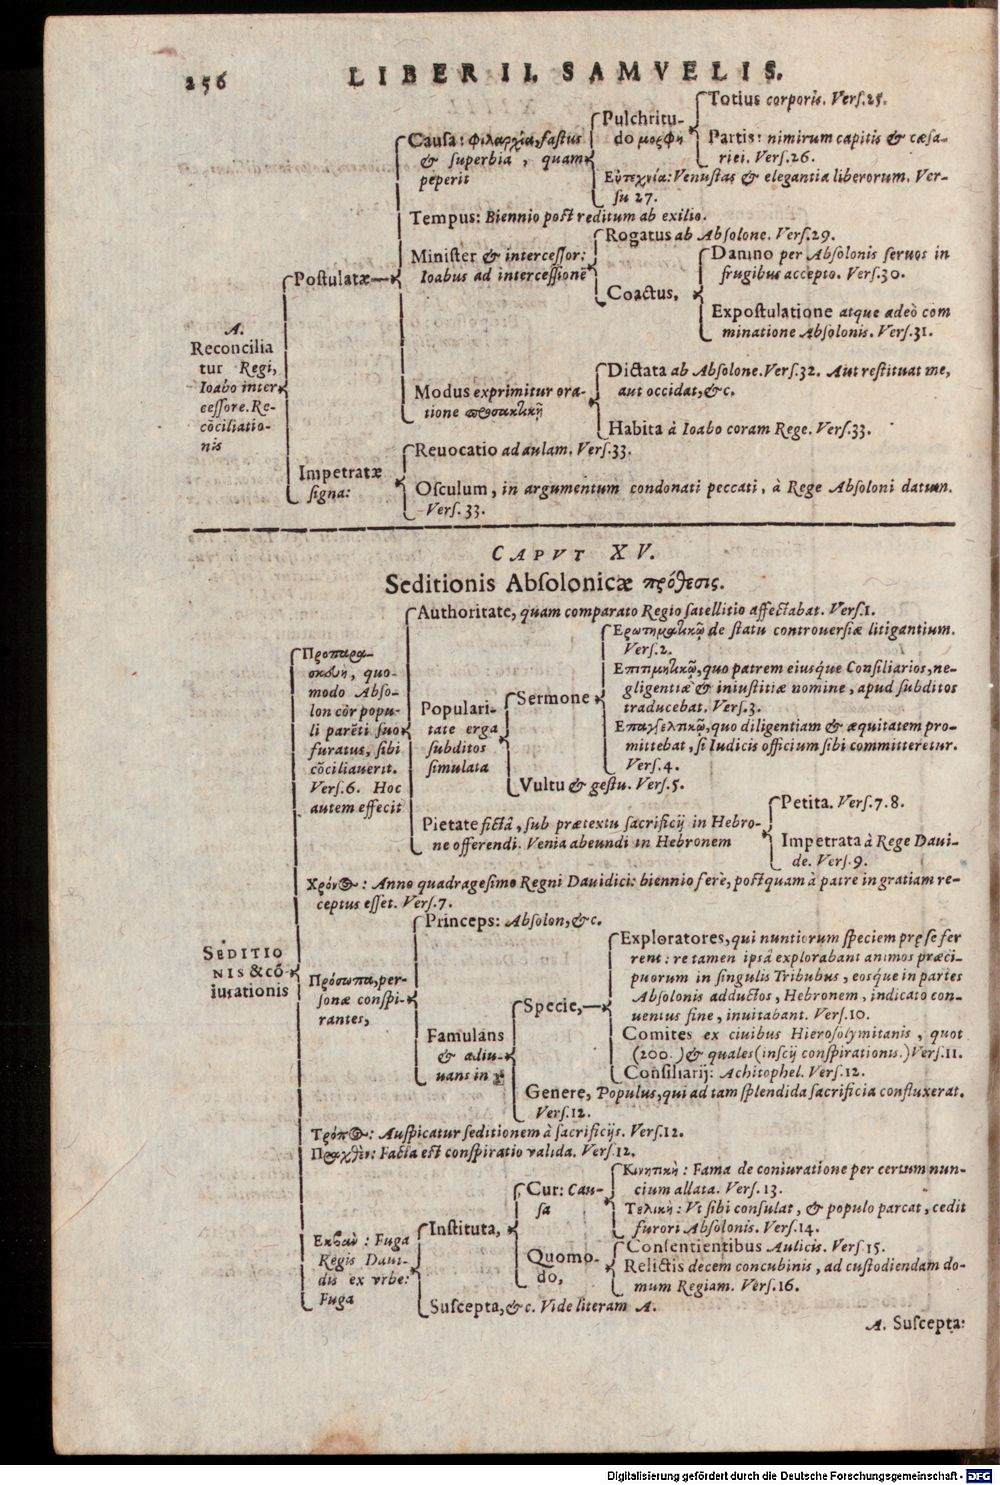 256
LIBER II. SAMVELIS.
A.
Reconcilia
tur Regi,
Ioabo inter
cessore. Re-
cōciliatio-
nis
Postulatæ
Causa: φιλαρχία, fastus
& superbia, quam
peperit
Pulchritu-
do μορφὴ
Totius corporis. Vers.25.
Partis: nimirum capitis & cæsa-
riei. Vers.26.
Εὐτεχνία: Venustas & elegantia liberorum. Ver-
su 27.
Tempus: Biennio post reditum ab exilio.
Minister & intercessor:
Ioabus ad intercessionē
Rogatus ab Absolone. Vers.29.
Coactus,
Damno per Absolonis servos in
frugibus accepto. Vers.30.
Expostulatione atque adeò com
minatione Absolonis. Vers.31.
Modus exprimitur ora-
tione
Dictata ab Absolone. Vers.32. Aut restituat me,
aut occidat, &c.
Habita à Ioabo coram Rege. Vers.33.
Impetratæ
signa:
Reuocatio ad aulam. Vers.33.
Osculum, in argumentum condonati peccati, à Rege Absoloni datum.
Vers. 33.
CAPVT XV.
Seditionis Absolonicæ πρόθεσις.
SEDITIO
NIS & cō-
iurationis
Προπαρα-
σκευὴ, quo-
modo Abso-
lon cōr popu-
li parēti suo
furatus, sibi
cōciliauerit.
Vers.6. Hoc
autem effecit
Authoritate, quam comparato Regio satellitio affectabat. Vers.1.
Populari-
tate erga
subditos
simulata
Sermone
Ερωτηματικῷ de statu controuersiæ litigantium.
Vers.2.
Επιτιμητικῷ, quo patrem eiusque Consiliarios, ne-
gligentiæ & iniustitiæ nomine, apud subditos
traducebat. Vers.3.
Επαγγελτικῷ, quo diligentiam & æquitatem pro-
mittebat, si Iudicis officium sibi committeretur.
Vers.4.
Vultu & gestu. Vers.5.
Pietate fictâ, sub prætextu sacrificij in Hebro-
ne offerendi. Venia abeundi in Hebronem
Petita. Vers.7.8.
Impetrata à Rege Daui-
de. Vers.9.
Χρόνος: Anno quadragesimo Regni Dauidici: biennio ferè, postquam à patre in gratiam re-
ceptus esset. Vers.7.
Πρόσωπα, per-
sonæ conspi-
rantes,
Princeps: Absolon, &c.
Famulans
& adiu-
uans in
Specie,
Exploratores, qui nuntiorum speciem prę se fer
rent: re tamen ipsâ explorabant animos præci-
puorum in singulis Tribubus, eosque in partes
Absolonis adductos, Hebronem, indicato con-
uentus fine, inuitabant. Vers.10.
Comites ex ciuibus Hierosolymitanis, quot
(200.) & quales (inscij conspirationis.) Vers.11.
Consiliarij: Achitophel. Vers.12.
Genere, Populus, qui ad tam splendida sacrificia confluxerat.
Vers.12.
Τρόπος: Auspicatur seditionem à sacrificijs. Vers.12.
Πραχθὲν: Facta est conspiratio valida. Vers.12.
Εκβασις: Fuga
Regis Daui-
dis ex vrbe:
Fuga
Instituta,
Cur: Cau-
sa
Κινητικὴ: Fama de coniuratione per certum nun-
cium allata. Vers.13.
Τελικὴ: Vt sibi consulat, & populo parcat, cedit
furori Absolonis. Vers.14.
Quomo-
do,
Consentientibus Aulicis. Vers.15.
Relictis decem concubinis, ad custodiendam do-
mum Regiam. Vers.16.
Suscepta, &c. Vide literam A.
A. Suscepta:
Digitalisierung gefördert durch die Deutsche Forschungsgemeinschaft - DFG